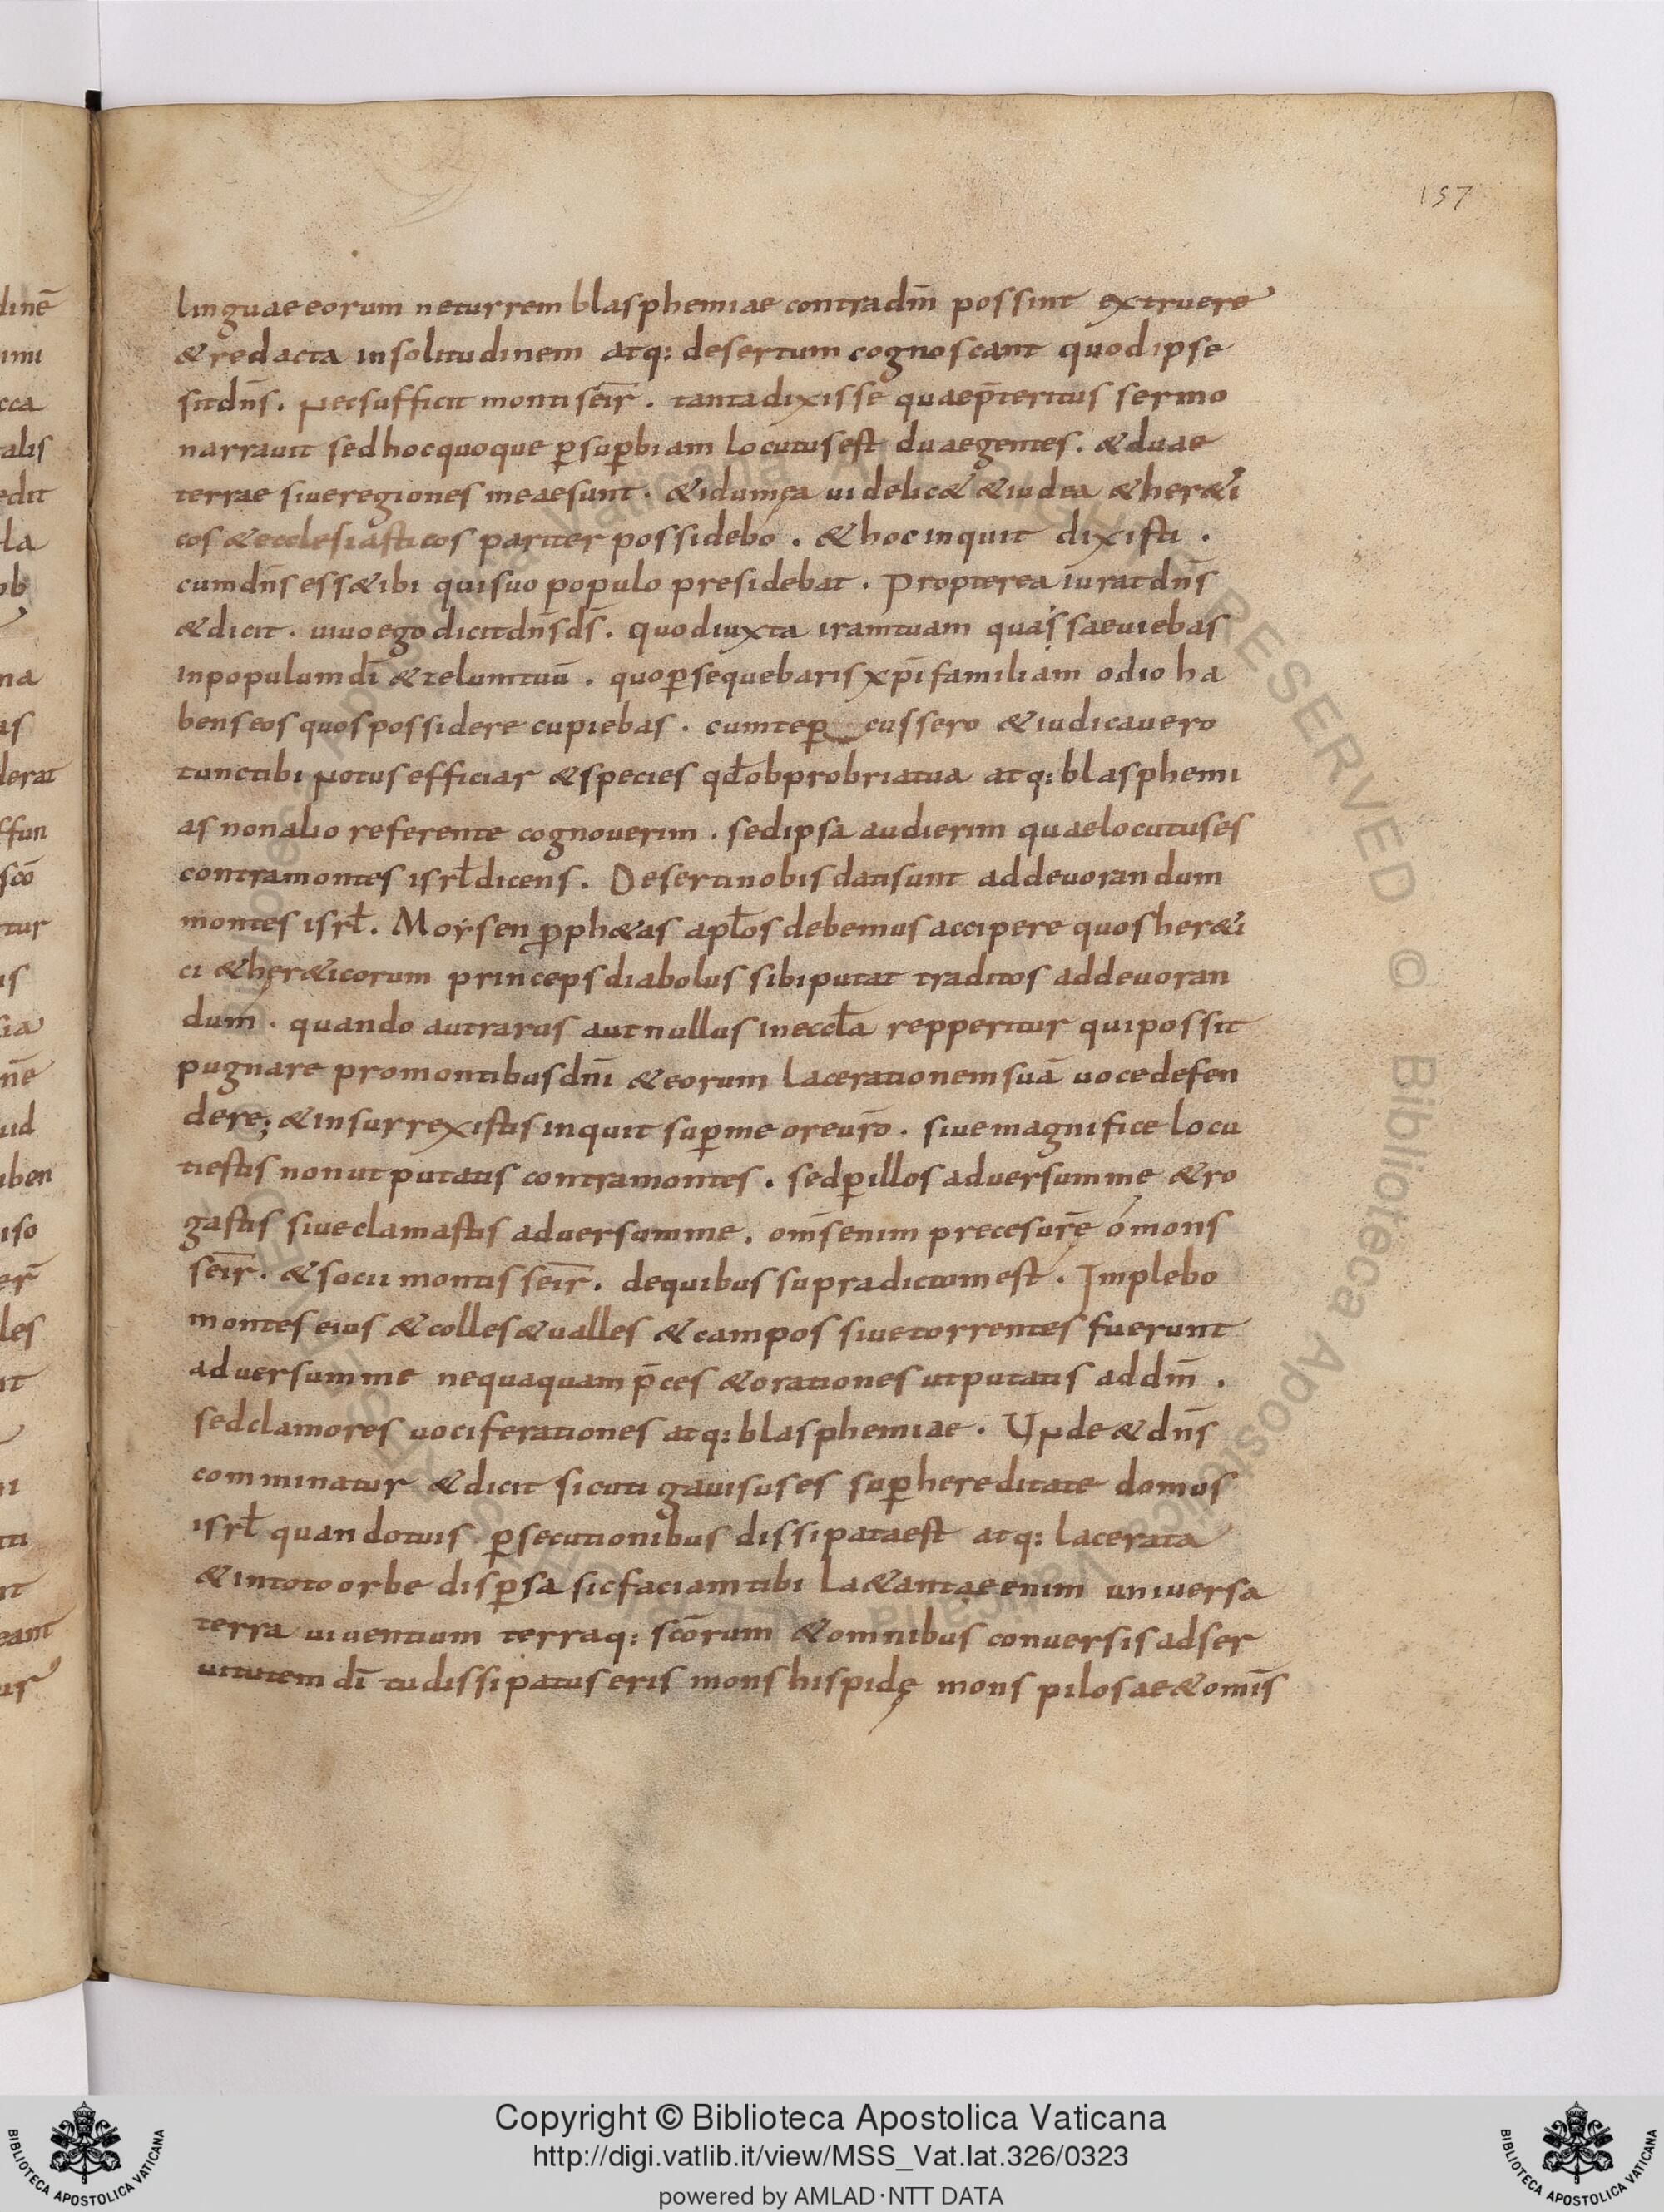 157
linguae eorum ne turrem blasphemiae contra dnm̄ possint extruere
& redacta in solitudinem atq: desertum cognoscant quod ipse
sit dn̄s. Nec sufficit monti seīr. tanta dixisse quae p̄teritus sermo
narrauit sed hoc quoque ꝑ suꝑbiam locutus est duae gentes. & duae
terrae siue regiones meae sunt. & idumęa uidelic& & iudea & her&i
cos & ecclesiasticos pariter possidebo. & hoc inquit dixisti.
cum dn̄s ess& ibi qui suo populo presidebat. Propterea iurat dn̄s
& dicit. uiuo ego dicit dn̄s ds̄. quod iuxta iram tuam qua saeuiebas
in populum dī & zelum tuū. quo ꝑsequebaris xp̄i familiam odio ha
bens eos quos possidere cupiebas. cum te ꝑcussero & iudicauero
tunc tibi Notus efficiar & species qđ obprobria tua atq: blasphemi
as non alio referente cognouerim. sed ipsa audierim quae locutus es
contra montes isrł dicens. Deserti nobis dati sunt ad deuorandum
montes isrł. Moysen ꝓph&as apłos debemus accipere quos her&i
ci & her&icorum princeps diabolus sibi putat traditos ad deuoran
dum. quando aut rarus aut nullus in eccła repperitur qui possit
pugnare pro montibus dnī & eorum lacerationem suā uoce defen
dere; & insurrexistis inquit suꝑ me ore ur̄o. siue magnifice locu
ti estis non ut putatis contra montes. sed ꝑ illos aduersum me & ro
gastis siue clamastis aduersum me. om̄s enim preces ur̄ę o mons
seīr. & socii montis seīr. de quibus supra dictum est. Implebo
montes eius & colles & ualles & campos siue torrentes fuerunt
aduersum me nequaquam p̄ces & orationes ut putatis ad dnm̄.
sed clamores uociferationes atq: blasphemiae. UNde & dn̄s
comminatur & dicit sicuti gauisus es suꝑ hereditate domus
isrł quando tuis ꝑsecutionibus dissipata est atq: lacerata
& in toto orbe disꝑsa sic faciam tibi la&antae enim uniuersa
terra uiuentium terraq: scōrum & omnibus conuersis ad ser
uitutem dī tu dissipatus eris mons hispidę mons pilosae & omīs
Copyright © Biblioteca Apostolica Vaticana
http://digi.vatlib.it/view/MSS_Vat.lat.326/0323
powered by AMLAD·NTT DATA
BIBLIOTECA APOSTOLICA VATICANA
BIBLIOTECA APOSTOLICA VATICANA